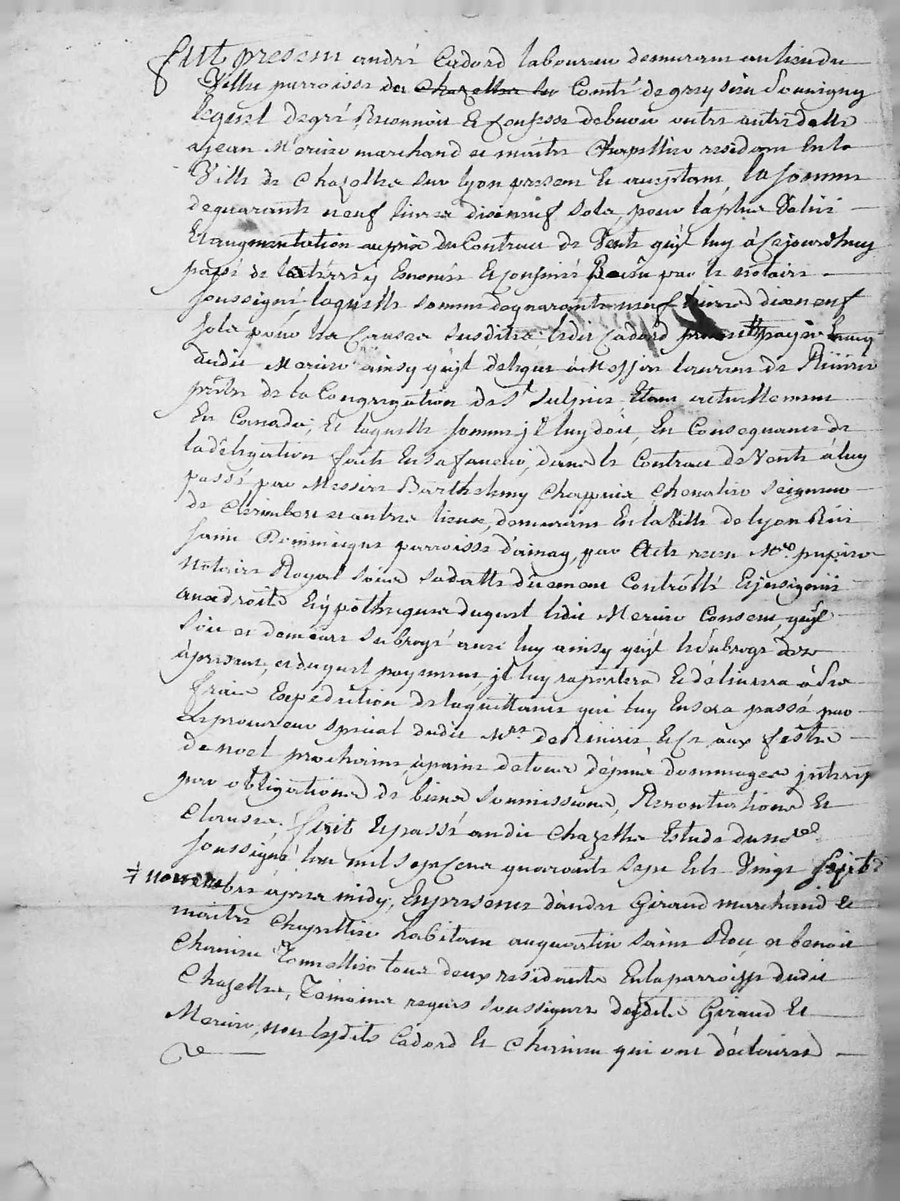 fut present andré Cadord laboureur demurant au lieu du
Villier parroisse de chazelles les Comté de grezieu Souvigny
lequel de gré Reconnoit et Confesse debvoir outre autre dette
a Jean Merieu marchand et maitre Chapellier residant en la
Ville de Chazelles sur lyon present et aceptant, la somme
de quarante neuf livres dixneuf sols, pour la plus Valüe
et augmentation au prix du Contract de Vente quil luy à Cejourdhuy
passé de la terre y Enoncée et Confinée Receu par le notaire
soussigné, laquelle somme de quarante neuf livres dixneuf
sols pour les Causes susdites ledit Cadord promet payer
dudit Merieu ainsy quil delegue à Messire laurens de
prêtre de la Congregation de St Sulpice Etant actuellement
En Canada, et laquelle somme jl luy doit, En Consequance de
la délegation faite En sa faveur, dans le Contract de Vente à luy
passé par Messire Barthelemy Chappuis Chevalier Seigneur
de Clerimbert et autres lieux, demeurant En la Ville de lyon Rüe
saint Dominique parroisse d'ainay, par Acte receu Me pupier
Notaire Royal sous sa datte düement Controllé Et jnsignüé
aux droits hypothequaire duquel ledit Merieu Consent quil
soit et demeure subrogé avec luy ainsy quil le subroge dez
àpresent, et duquel payement jl luy raportera Et délivrera à ses
frais Expedition de la quittance qui luy En sera passé par
le procureur spécial dudit Mre de et Ce aux festes
de noel prochaines à peine de tous dépens dommages jnterets
par obligations de biens soumissions, Renontiations et
Clauses. fait Et passé audit Chazelles Estude du nore
soussigné l'an mil sept Cent quarante sept et le Vingt sept
novembre après midy, En presence d'andré Giraud marchand et
maitre Chapellier habitant au quartier saint Roc, et benoit
Tonnellier tous deux residants En la parroisse dudit
Chazelles, Temoins requis soussignés lesdits Giraud Et
Merieu, non lesdits Cadord Et qui ont déclarés